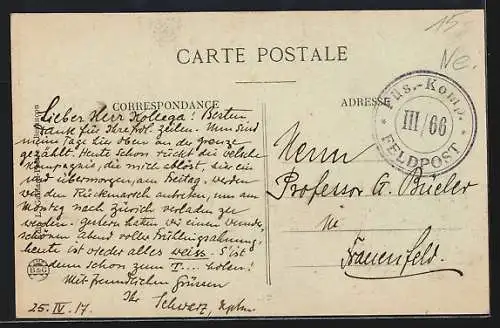 15
Ne.
CARTE POSTALE
CORRESPONDANCE
ADRESSE
Füs.-Komp.
III/66
FELDPOST
Lieber Herr Kollega! Besten
Dank für Ihre frdl. Zeilen. Nun sind
meine Tage hier oben an der Grenze
gezählt. Heute schon rückt die welsche
Kompagnie, die mich ablöst, hier ein
und übermorgen, am Freitag, werden
wir den Rückmarsch antreten, um am
Montag nach Zürich verladen zu
werden. Gestern hatten wir einen wunder-
schönen Abend voller Frühlingsahnung
heute ist wieder alles weiss. S'ist
denn schon zum T... holen!
Mit freundlichen Grüssen
Ihr Schwarz, Hptm.
25. IV. 17.
Herrn
Professor G. Büeler
in
Frauenfeld.
B&G